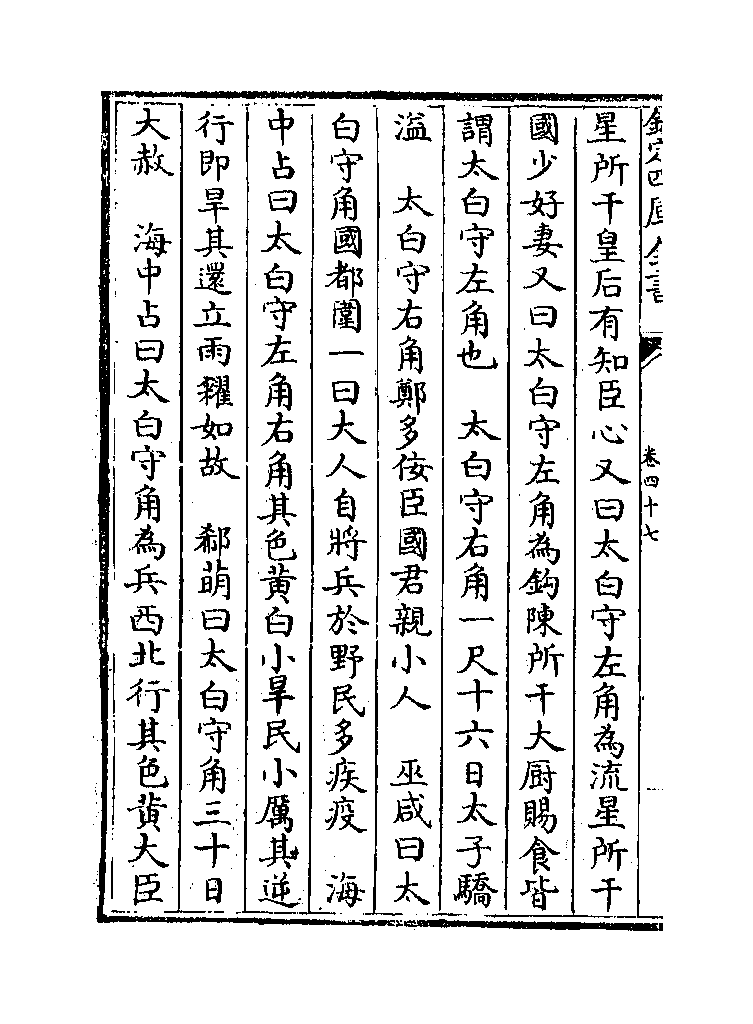 欽定四庫全書
卷四十七
星所干皇后有知臣心又曰太白守左角為流星所干
國少好妻又曰太白守左角為鈎陳所干大厨賜食皆
謂太白守左角也　太白守右角一尺十六日太子驕
溢　太白守右角鄭多佞臣國君親小人　巫咸曰太
白守角國都圍一曰大人自將兵於野民多疾疫　海
中占曰太白守左角右角其色黄白小旱民小厲其逆
行即旱其還立雨糴如故　郗萌曰太白守角三十日
大赦　海中占曰太白守角為兵西北行其色黄大臣